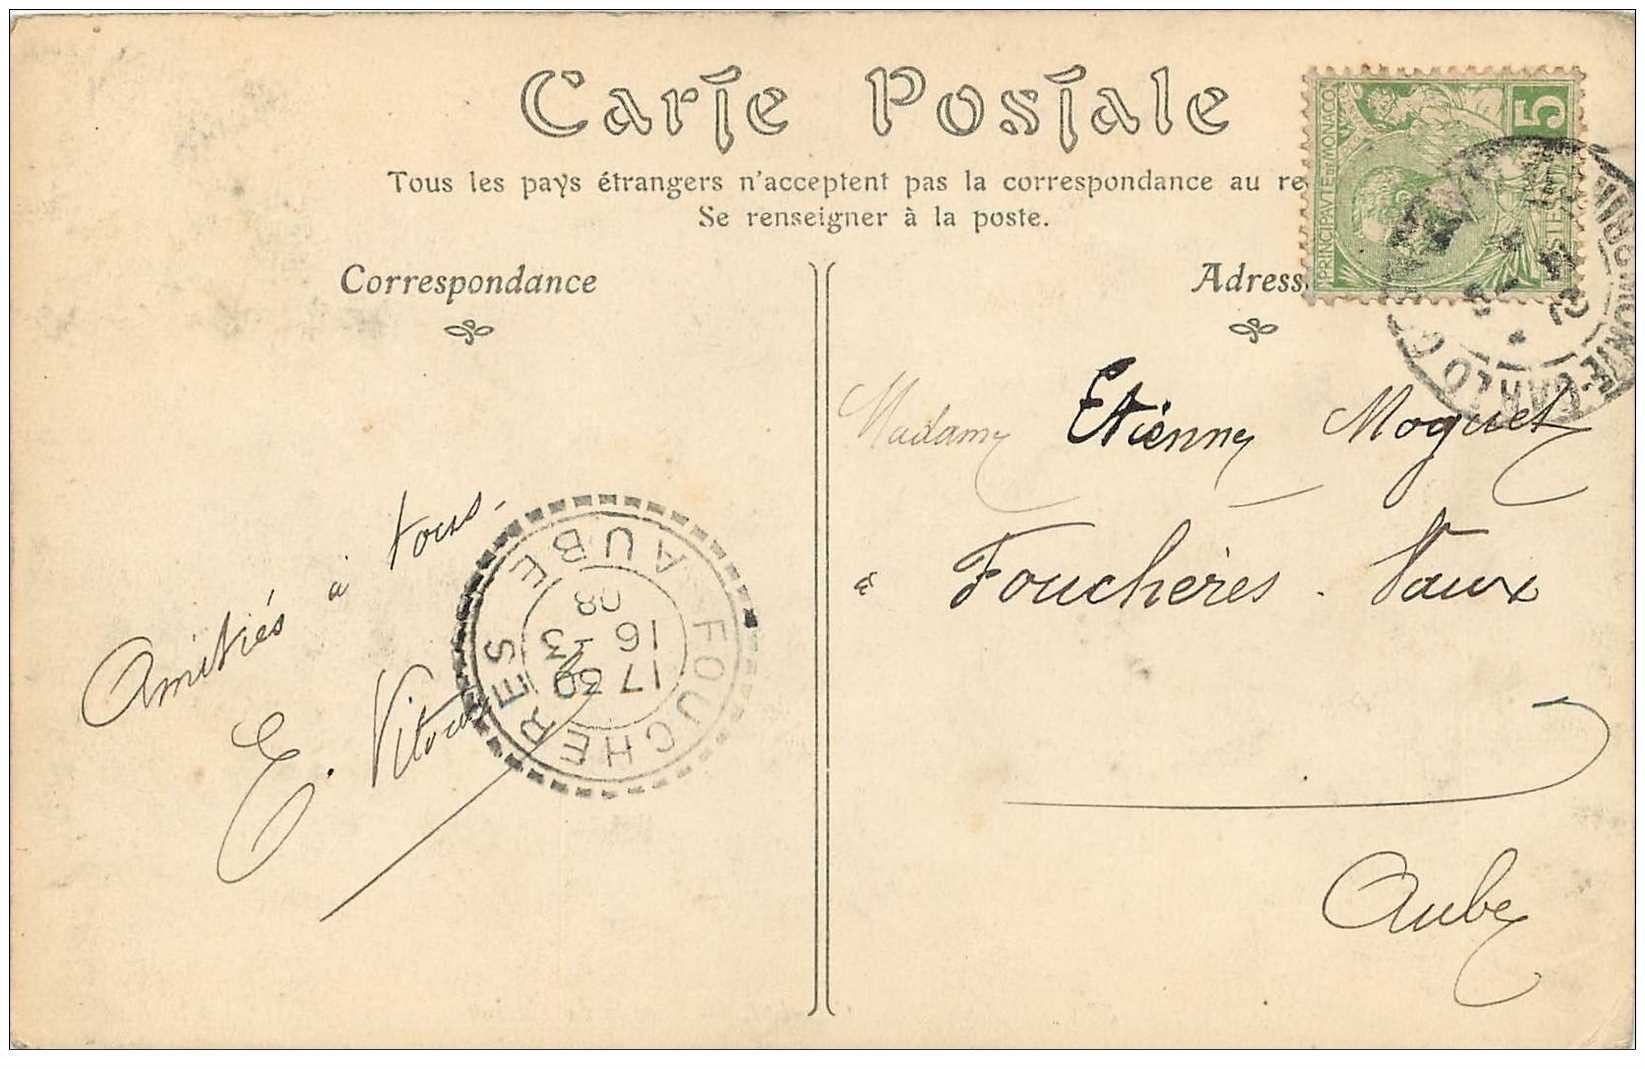 Carte Postale
Tous les pays étrangers n'acceptent pas la correspondance au re
Se renseigner à la poste.
Correspondance
Adress
PRINCIPAUTÉ DE MONACO
5
MONTE-CARLO
Madame Etienne Moguet
à Fouchères. Vaux
Aube
Amitiés à tous.
E.
FOUCHERES
AUBE
17 30
16 3
08